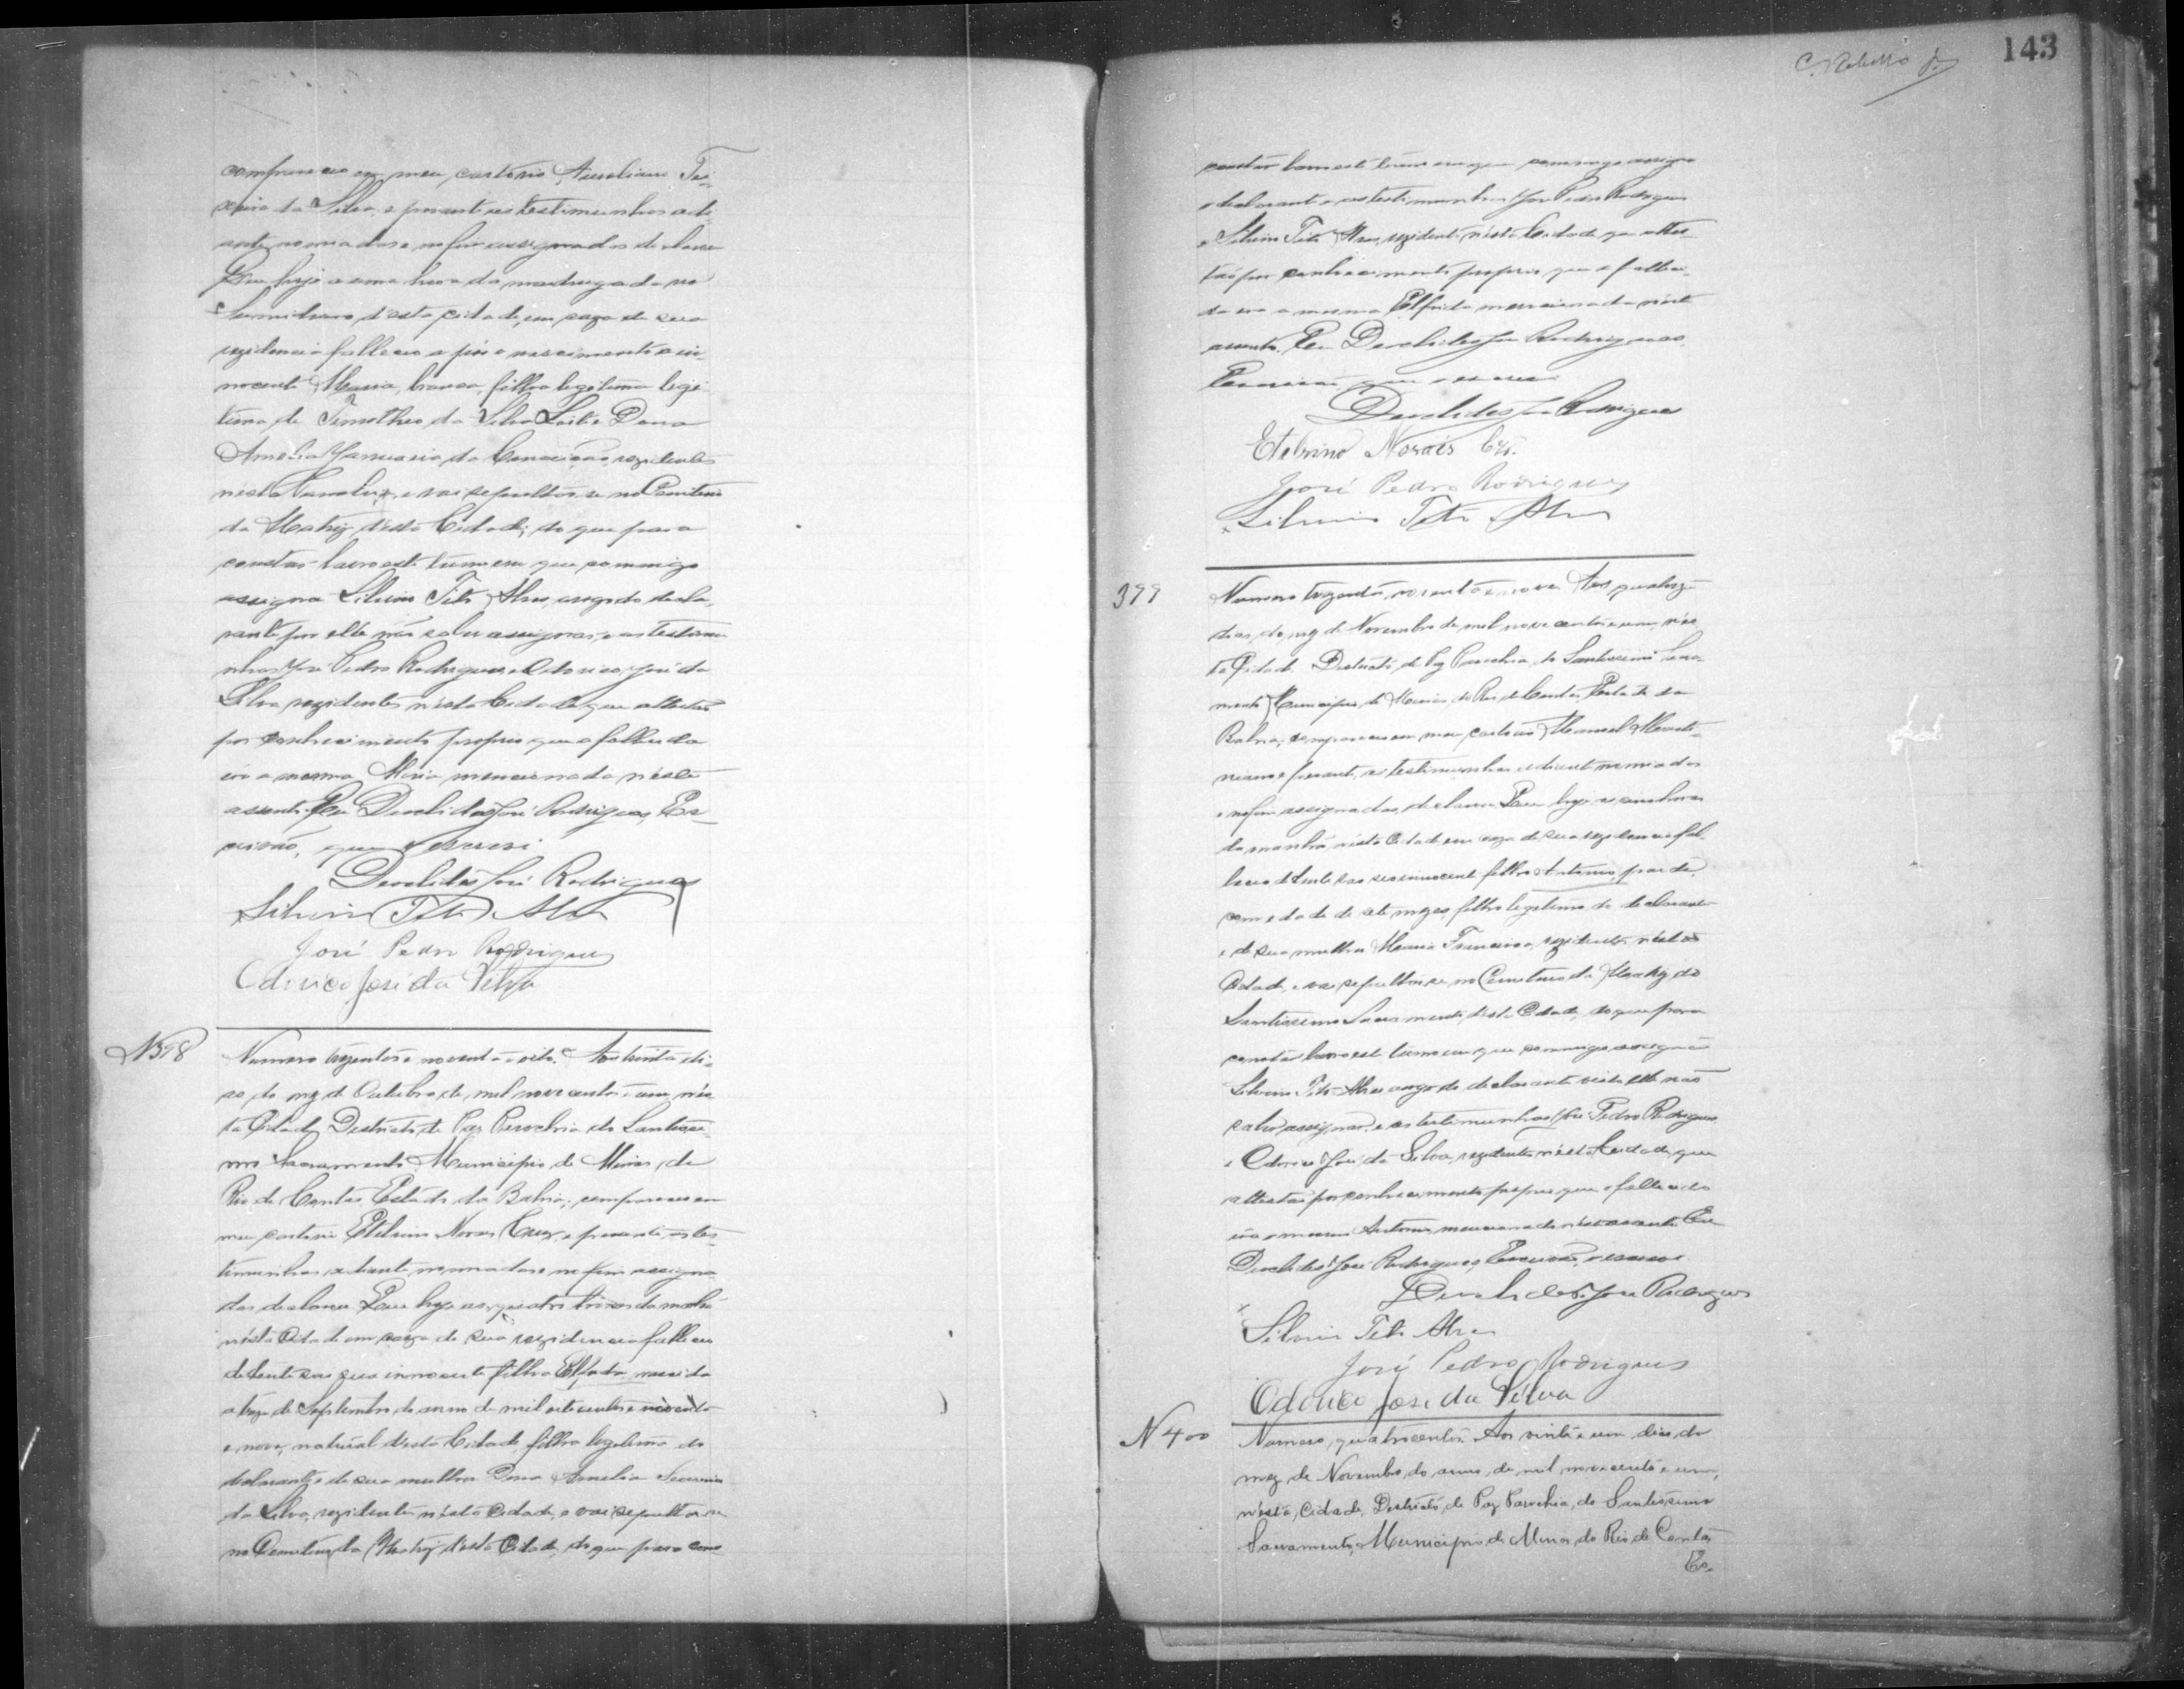 compareceu em meu cartorio Aureliano Tei-
xeira da Silva, e perante as testimunhas adi-
ante nomiadas e no fim assignadas declarou
Que hoje a uma hora da madrugada no
d'esta cidade, em caza de sua
rezidencia falleceu a pós o nascimento a in-
nocente Maria, branca, filha legitima legi-
tima de Timotheo da Silva Leite e Dona
Amelia Januaria da Conceição rezidentes
nesta e vai sepultar-se no Cemiterio
da Matriz d'esta Cidade, do que para
constar lavro este termo em que commigo
assigna Silvino Tito Alves, a rogo do decla-
rante por elle não saber assignar, e as testemu-
nhas José Pedro Rodrigues e Odorico José da
Silva rezidentes n'esta Cidade que attestão
por conhecimento proprio que a fallecida
era a mesma Maria mencionada n'este
assento. Eu Deoclides José Rodrigues, Es-
crivão, que o escrevi
Deoclides José Rodrigues
Silvino Tito Alves
José Pedro Rodrigues
Odorico José da Silva
N 398
Numero trezentos e noventa e oito. Aos trinta di-
as do mez de Outubro de mil novecentos e um, nes-
ta Cidade, Destricto de Paz Parochia do Santissi-
mo Sacramento, Municipio de Minas do
Rio de Contas, Estado da Bahia; compareceu em
meu cartorio Etelvino Novais Cruz, e perante as tes-
timunhas adiante nomiadas e no fim assigna-
das declarou Que hoje as quatro horas da manhã
n'esta Cidade em caza de sua rezidencia falleceu
sua innocente filha Elfrida, nascida
a treze de Septembro do anno de mil oito centos e noventa
e nove, natural d'esta Cidade, filha legitima do
declarante e de sua mulher Dona Amelia
da Silva, rezidentes n'esta Cidade, e vai sepultar-se
no Cemiterio da Matriz d'esta Cidade, do que para cons-
C. Rebello Jr.
143
constar lavro este termo em que commigo assigna
o declarante e as testimunhas José Pedro Rodrigues
e Silvino Tito Alves, rezidentes n'esta Cidade que attes-
tão por conhecimento proprio que a falleci-
da era a mesma Elfrida mencionada n'este
assento. Eu Deoclides José Rodrigues,
Escrivão, que o escrevi
Deoclides José Rodrigues
Etelvino Novais Cruz.
José Pedro Rodrigues
Silvino Tito Alves
399
Numero trezentos, noventa e nove. Aos quatorze
dias do mez de Novembro de mil novecentos e um, n'es-
ta Cidade Destricto de Paz Parochia do Santissimo Sacra-
mento, Municipio de Minas do Rio de Contas, Estado da
Bahia; compareceu em meu cartorio Manoel
e perante as testimunhas adiante nomiadas
e no fim assignadas, declarou Que hoje as horas
da manhã n'esta Cidade em caza de sua rezidencia fal-
leceu seo innocente filho Antonio, pardo,
com edade de sete mezes, filho legitimo do declarante
e de sua mulher Maria Francisca, rezidentes n'esta
Cidade, e vai sepultar-se no Cemiterio da Matriz do
Santissimo Sacramento, d'esta Cidade, do que para
constar lavro este termo em que commigo assigna
Silvino Tito Alves a rogo do declarante visto elle não
saber assignar, e as testimunhas José Pedro Rodrigues
e Odorico José da Silva, rezidentes n'esta Cidade, que
attestão por conhecimento proprio que o fallecido
era o mesmo Antonio mencionado n'este assento. Eu
Deoclides José Rodrigues, Escrivão, o escrevi
Deoclides José Rodrigues
Silvino Tito Alves
José Pedro Rodrigues
Odorico José da Silva
N 400
Numero, quatrocentos. Aos vinte e um dias do
mez de Novembro do anno de mil novecentos e um,
n'esta, Cidade, Destricto, de Paz Parochia, do Santissimo
Sacramento, Municipio de Minas do Rio de Contas,
Es-